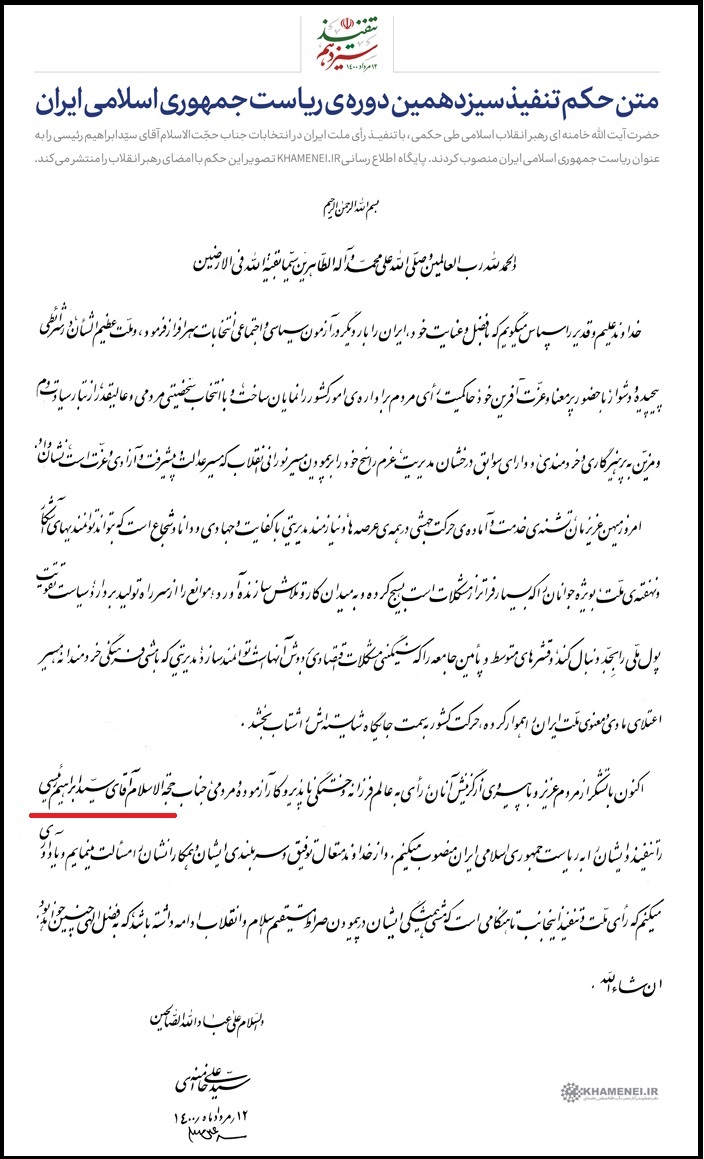 تنفیذ
سیزدهم
۱۲ مرداد ۱۴۰۰
متن حکم تنفیذ سیزدهمین دوره‌ی ریاست جمهوری اسلامی ایران
حضرت آیت الله خامنه ای رهبر انقلاب اسلامی طی حکمی، با تنفیـذ رأی ملت ایران در انتخابات جناب حجّت‌الاسلام آقای سیّد ابراهیم رئیسی را به
عنوان ریاست جمهوری اسلامی ایران منصوب کردند. پایگاه اطلاع رسانی KHAMENEI.IR تصویر این حکم با امضای رهبر انقلاب را منتشر می‌کند.
بسم الله الرحمن الرحیم
والحمدلله رب العالمین و صلّی الله علی محمّد و آله الطّاهرین سیّما بقیّة الله فی الارضین
خداوند علیم و قدیر را سپاس میگویم که با فضل و عنایت خود، ایران را بار دیگر در آزمون سیاسی و اجتماعی انتخابات سرافراز فرمود، و ملّت عظیم‌الشأن در شرائطی
پیچیده و دشوار با حضور پرمعنا و عزّت‌آفرین خود حاکمیت رأی مردم بر اداره‌ی امور کشور را نمایان ساخت و با انتخاب شخصیّتی مردمی و عالیقدر از تبار سیادت و علم
و مزیّن به پرهیزگاری و خردمندی و دارای سوابق درخشان مدیریّت عزم راسخ خود را بر پیمودن مسیر نورانی انقلاب که مسیر عدالت و پیشرفت و آزادی و عزّت است نشان داد.
امروز میهن عزیزمان تشنه‌ی خدمت و آماده‌ی حرکت جهشی در همه‌ی عرصه ها و نیازمند مدیریتی با کفایت و جهادی و دانا و شجاع است که بتواند توانمندیهای آشکار
و نهفته‌ی ملّت بویژه جوانان را که بسیار فراتر از مشکلات است بسیج کرده و به میدان کار و تلاش سازنده آورد، موانع را از سر راه تولید بردارد، سیاست تقویت
پول ملّی را بجدّ دنبال کند و قشرهای متوسط و پایین جامعه را که سنگینی مشکلات اقتصادی بر دوش آنهاست توانمند سازد، مدیریتی که با مشی فرهنگی خردمندانه مسیر
اعتلای مادی و معنوی ملّت ایران را هموار کرده، حرکت کشور به سمت جایگاه شایسته‌اش را شتاب بخشد.
اکنون با تشکر از مردم عزیز و با پیروی از گزینش آنان رأی به عالم فرزانه و خستگی ناپذیر و کارآزموده و مردمی جناب حجة‌الاسلام آقای سیّد ابراهیم رئیسی
را تنفیذ و ایشان را به ریاست جمهوری اسلامی ایران منصوب میکنم. و از خداوند متعال توفیق و سربلندی ایشان و همکارانشان را مسألت مینمایم و یادآوری
میکنم که رأی ملّت و تنفیذ اینجانب تا هنگامی است که مشی همیشگی ایشان در پیمودن صراط مستقیم اسلام و انقلاب ادامه داشته باشد که به فضل الهی چنین خواهد بود.
ان شاءالله.
والسّلام علی عباد الله الصّالحین
سیّد علی خامنه‌ای
۱۲ مرداد ماه ۱۴۰۰
KHAMENEI.IR